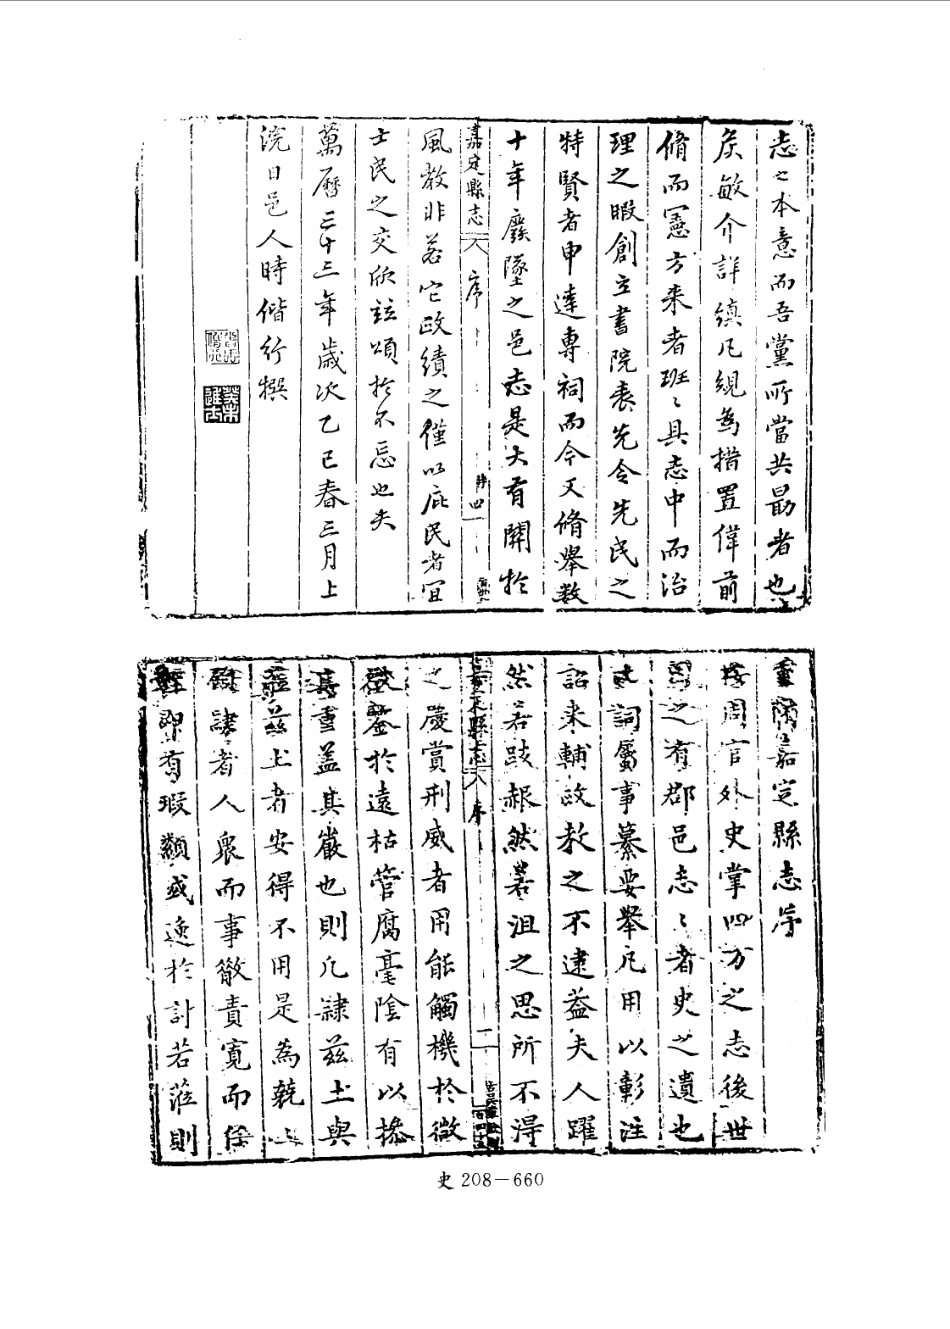 志之本意而吾黨所當共勗者也
矦敏介詳縝凡規為措置偉前
脩而憲方来者班〻具志中而治
理之暇創立書院表先令先民之
特賢者申達專祠而今又脩舉数
十年廢墜之邑志是大有関於
嘉定縣志 序 四
風教非若它政績之僅以庇民者冝
士民之交欣竝頌於不忘也夫
萬曆三十三年歲次乙巳春三月上
浣日邑人時偕行撰
重脩嘉定縣志序
按周官外史掌四方之志後世
因之有郡邑志〻者史之遺也
詞屬事纂要舉凡用以彰注
詔来輔政教之不逮葢夫人躍
然若跂赧然若沮之思所不淂
嘉定縣志 序 二
之慶賞刑威者用能觸機於微
鑒於遠枯管腐毫陰有以摻
其重盖其嚴也則凡隸茲土與
蒞茲土者安得不用是為兢〻
隸者人衆而事散責寛而
即有瑕纇或逸於計若蒞則
史 208－660